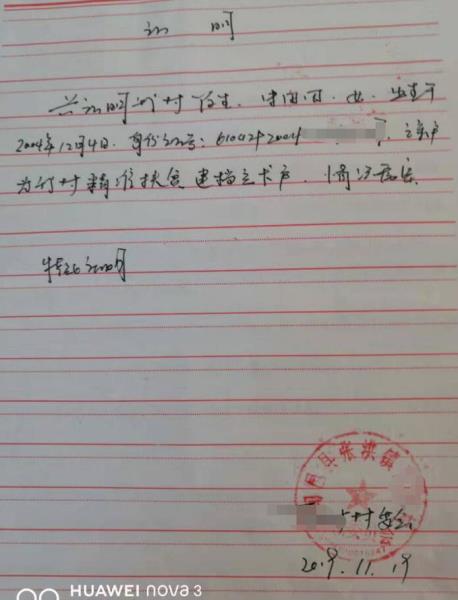 证明
兹证明我村 学生, 女, 出生于
2004年12月4日. 身份证号: 610424 2004 , 该户
为我村精准扶贫建档立卡户. 情况属实.
特此证明
旬邑县张洪镇
村委会
2019.11.19
HUAWEI nova 3